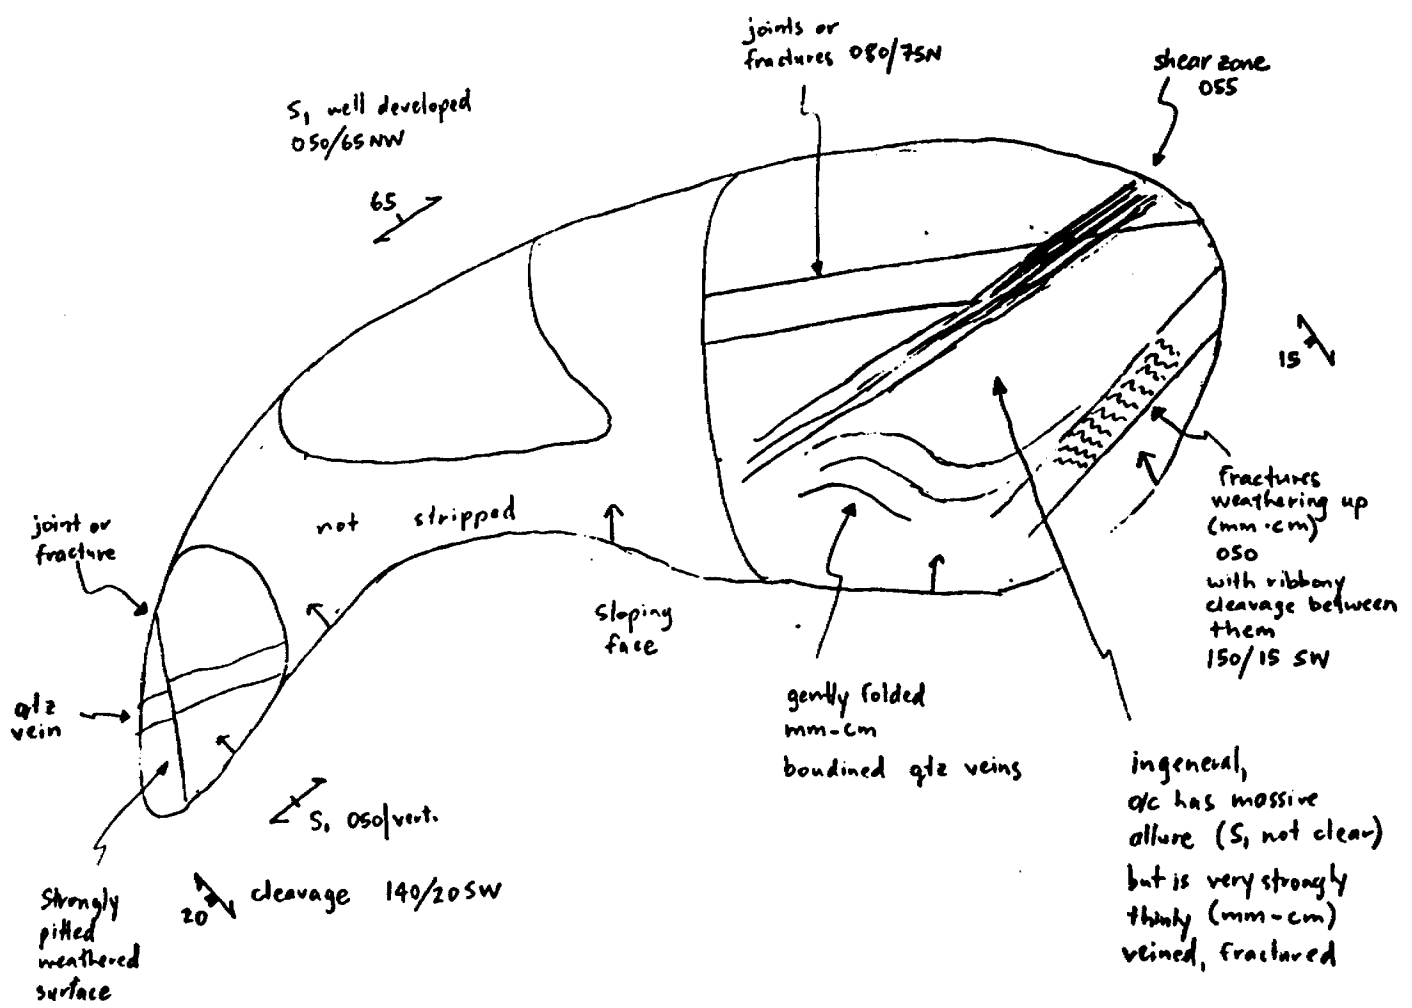 joints or
fractures 080/75N
shear zone
055
S1 well developed
050/65NW
65
15
Fractures
weathering up
(mm-cm)
050
with ribbony
cleavage between
them
150/15 SW
joint or
fracture
not stripped
sloping
face
qtz
vein
gently folded
mm-cm
boudined qtz veins
in general,
o/c has massive
allure (S1 not clear)
but is very strongly
thinly (mm-cm)
veined, fractured
S1 050/vert.
20
cleavage 140/20SW
Strongly
pitted
weathered
surface